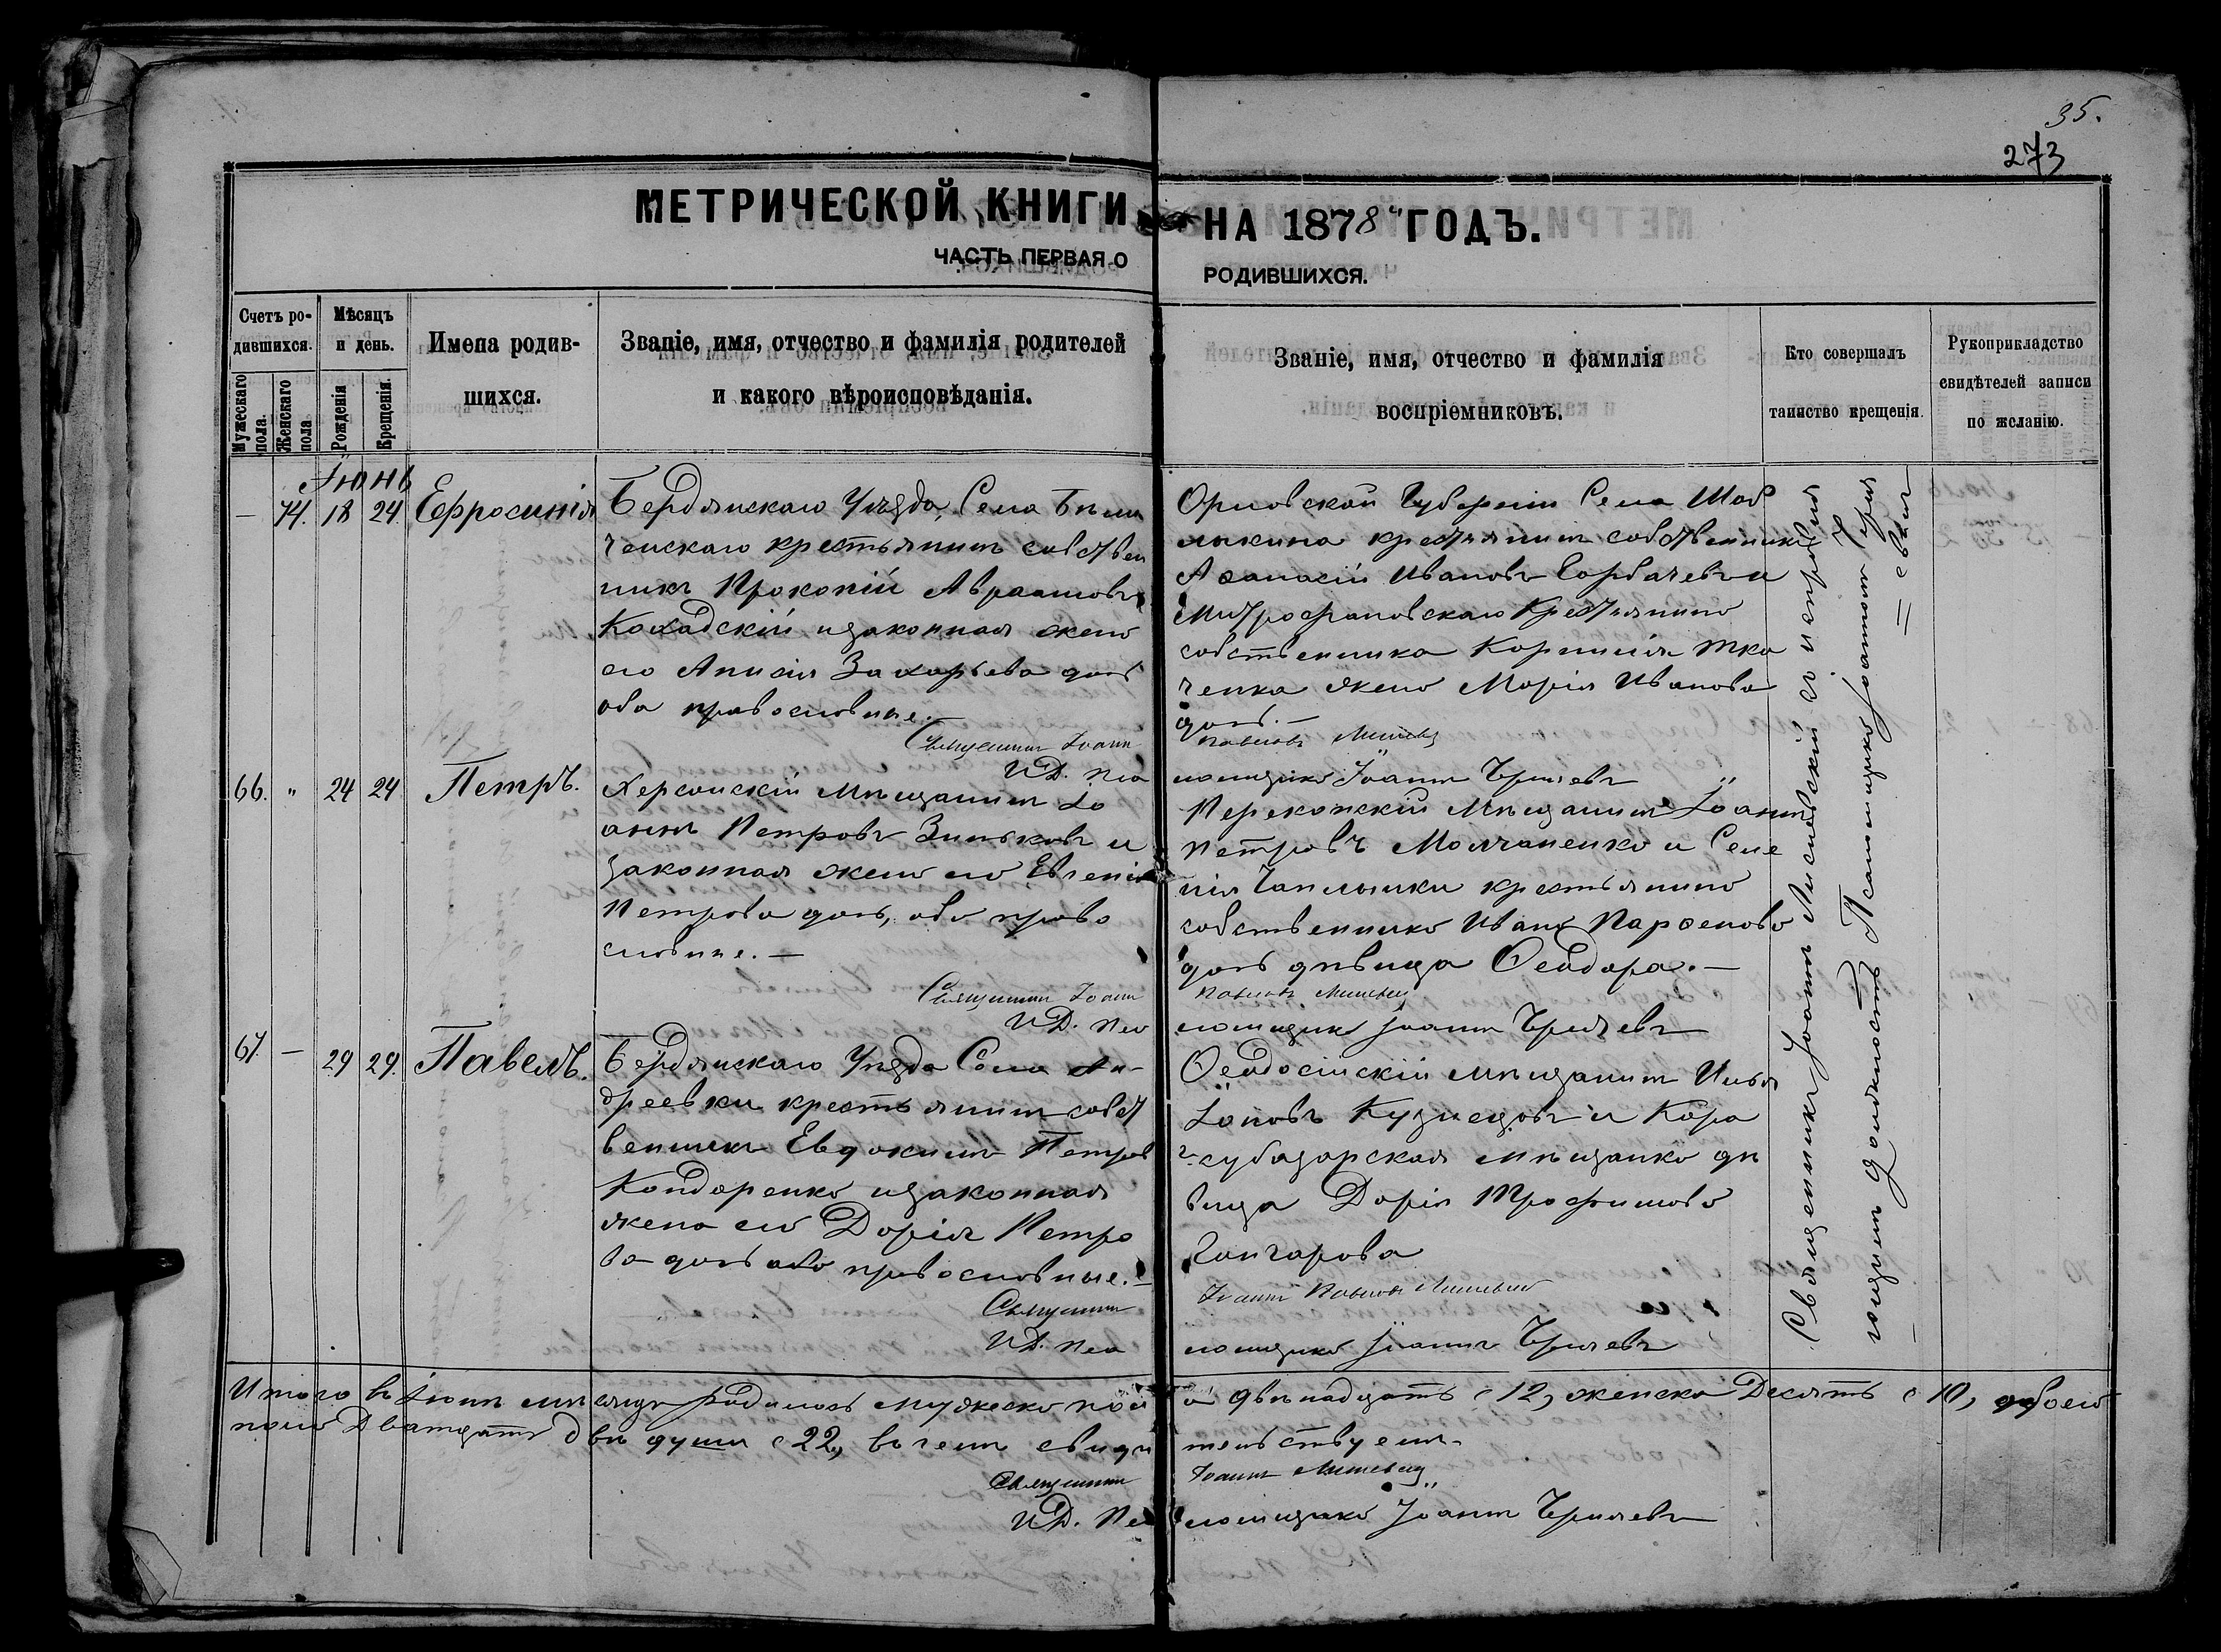 35.
273
МЕТРИЧЕСКОЙ КНИГИ НА 1878 ГОДЪ.
ЧАСТЬ ПЕРВАЯ О РОДИВШИХСЯ.
Счетъ родившихся.
Мужескаго пола.
Женскаго пола
Мѣсяцъ и день.
Рожденія
Крещенія.
Имена родившихся.
Званіе, имя, отчество и фамилія родителей и какого вѣроисповѣданія.
Званіе, имя, отчество и фамилія воспріемниковъ.
Кто совершалъ таинство крещенія.
Рукоприкладство свидѣтелей записи по желанію.
Іюнь
— 74. 18 24. Ефросинія
Бердянскаго Уѣзда, Села
крестьянинъ собствен
никъ Прокопій Авраамовъ
и законная жена
его Анисія Захарьева дочь
оба православные.—
Орловской Губерніи Села
крестьянинъ собственникъ
Аѳанасій Ивановъ Горбачевъ и
Митрофановскаго Крестьянина
собственника Корнилія Тка
ченка жена Марія Иванова
дочь.—
Священникъ Іоаннъ Павловъ
И.Д. Псаломщика Іоаннъ
66. " 24 24 Петръ.
Херсонскій Мѣщанинъ Іо
аннъ Петровъ Зиньковъ и
законная жена его Евгенія
Петрова дочь, оба право
славные.—
Перекопскій Мѣщанинъ Іоаннъ
Петровъ Молчаненко и Селе
нія Чаплынки крестьянина
собственника Ивана Парѳенова
дочь дѣвица Ѳеодора.—
Священникъ Іоаннъ Павловъ
И.Д. Псаломщика Іоаннъ
67. — 29 29. Павелъ.
Бердянскаго Уѣзда Села Ан-
дреевки крестьянинъ собст
венникъ Евдокимъ Петровъ
Кондаренко и законная
жена его Дарія Петро
ва дочь оба православные.—
Ѳеодосійскій мѣщанинъ Илья
Іоновъ Кузнецовъ и Кара
субазарская мѣщанка дѣ
вица Дарія Трофимова
Гончарова
Священникъ Іоаннъ Павловъ
И.Д. Псаломщика Іоаннъ
Священникъ Іоаннъ
должность Псаломщика Іоаннъ
Итого въ Іюнѣ мѣсяцѣ родилось мужеска пола двѣнадцать "12", женска Десять "10", обоего
пола Двадцать двѣ души "22", въ чемъ свидѣтельствуемъ.
Священникъ Іоаннъ
И.Д. Псаломщика Іоаннъ